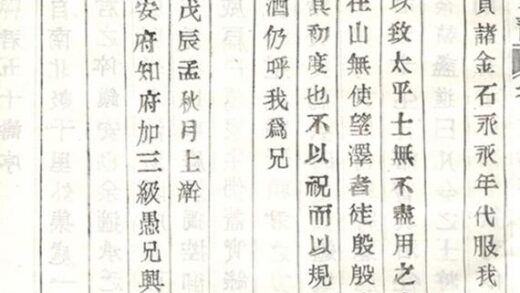 貫諸金石永永年代服我
以致太平士無不盡用之
在山無使望澤者徒殷殷
其初度也不以祝而以規
酒仍呼我爲兄
戊辰孟秋月上澣
安府知府加三級愚兄興